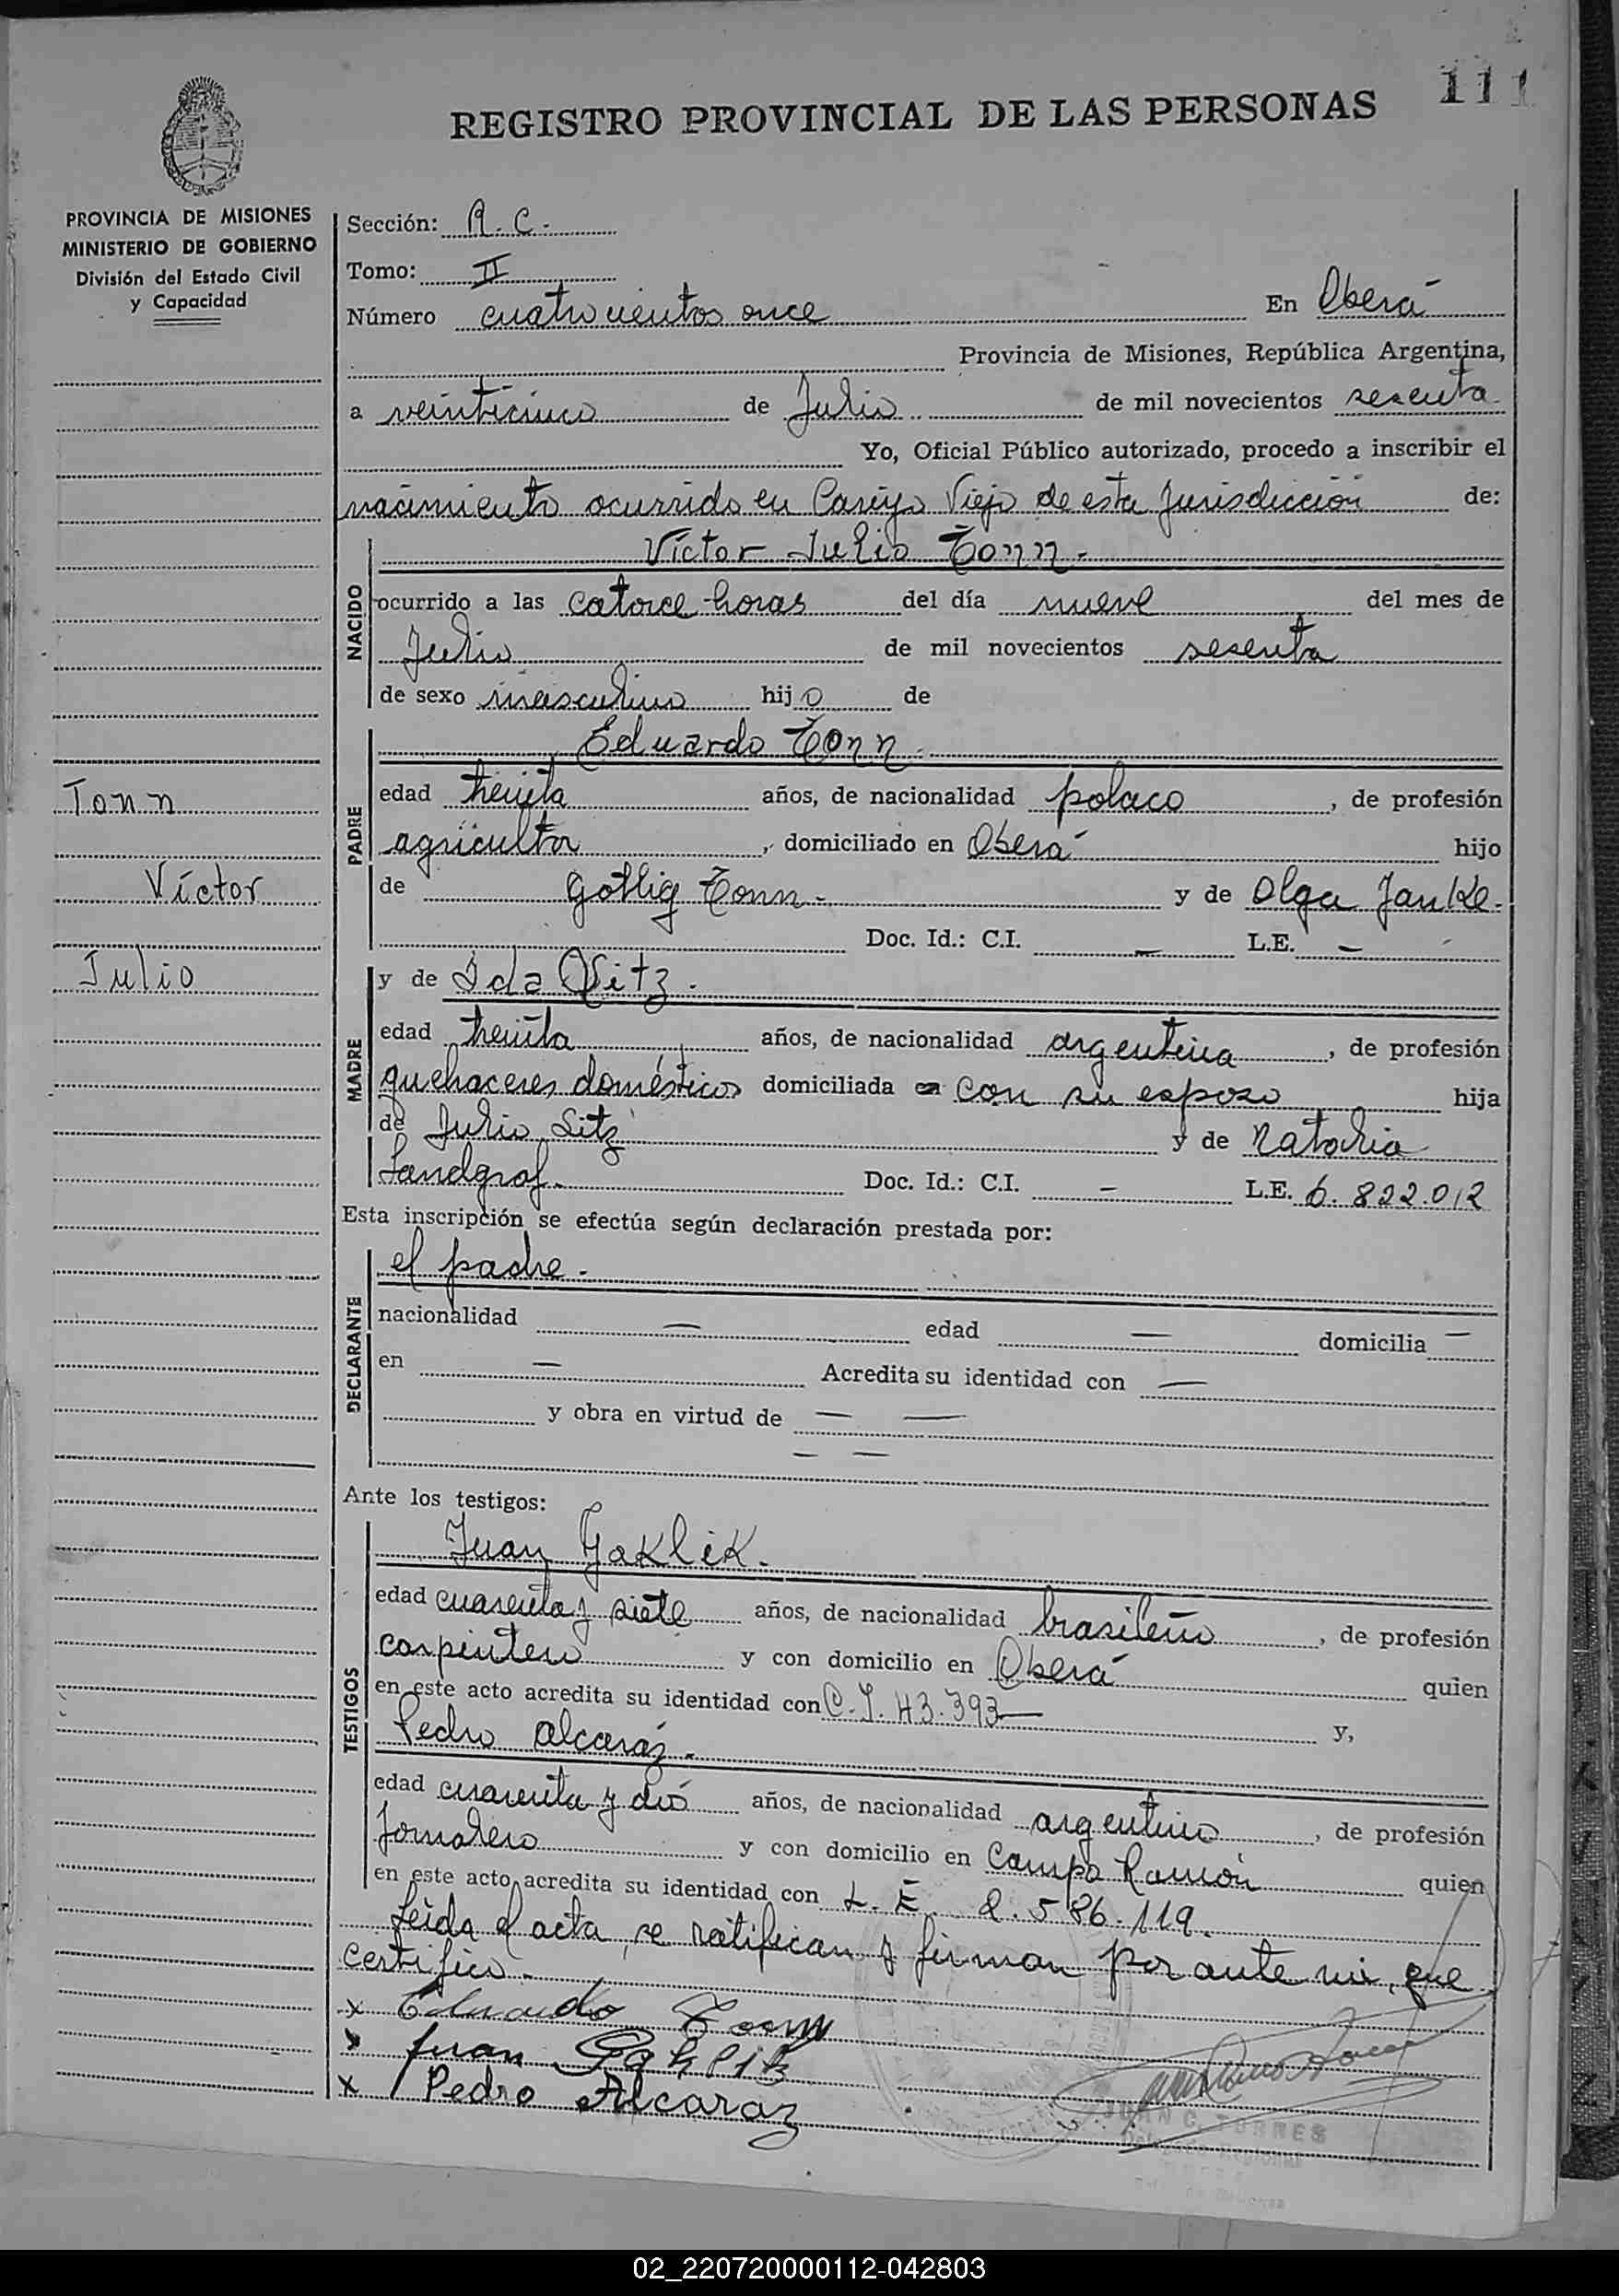 111
REGISTRO PROVINCIAL DE LAS PERSONAS
PROVINCIA DE MISIONES
MINISTERIO DE GOBIERNO
División del Estado Civil
y Capacidad
Tonn
Víctor
Julio
Sección: R. C.
Tomo: II
Número cuatrocientos once En Oberá
Provincia de Misiones, República Argentina,
a veinticinco de Julio de mil novecientos sesenta
Yo, Oficial Público autorizado, procedo a inscribir el
nacimiento ocurrido en Viejo de esta Jurisdicción de:
NACIDO
Víctor Julio Tonn.
ocurrido a las catorce horas del día nueve del mes de
Julio de mil novecientos sesenta
de sexo masculino hijo de
PADRE
Eduardo Tonn.
edad treinta años, de nacionalidad polaco, de profesión
agricultor, domiciliado en Oberá hijo
de Gotlig Tonn. y de Olga Janke.
Doc. Id.: C.I. — L.E. —
MADRE
y de Ida
edad treinta años, de nacionalidad argentina, de profesión
quehaceres domésticos domiciliada en con su esposo hija
de Julio y de Natalia
Doc. Id.: C.I. — L.E. 6.822.012
Esta inscripción se efectúa según declaración prestada por:
DECLARANTE
el padre.
nacionalidad — edad — domicilia —
en — Acredita su identidad con —
y obra en virtud de — —
— —
Ante los testigos:
TESTIGOS
Juan Gaklik.
edad cuarenta y siete años, de nacionalidad brasileño, de profesión
carpintero y con domicilio en Oberá quien
en este acto acredita su identidad con C.I. 43.393— y,
Pedro Alcaráz.
edad cuarenta y dos años, de nacionalidad argentino, de profesión
Jornalero y con domicilio en Campo Ramón quien
en este acto acredita su identidad con L. E. 2.586.119.
Leída el acta, se ratifican y firman por ante mi, que
certifico.
x Eduardo Tonn
x Juan Gaklik
x Pedro Alcaraz
JUAN C. TORRES
02_220720000112-042803